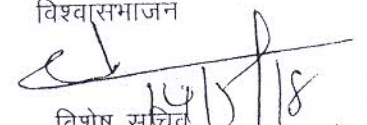 विश्वासभाजन
14/5/18
विशेष सचिव